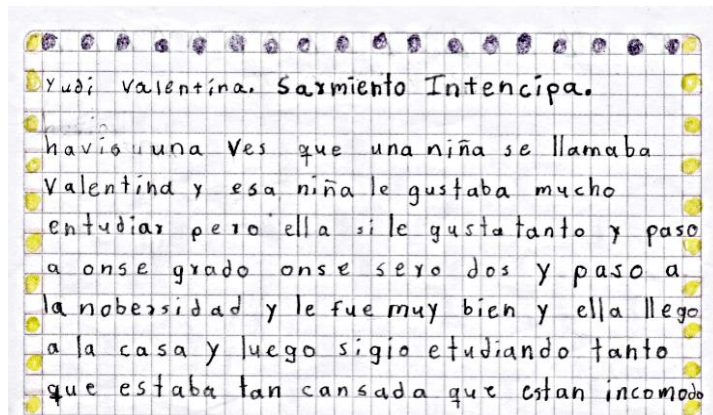 Yudi Valentina. Sarmiento Intencipa.
havia una Ves que una niña se llamaba
Valentina y esa niña le gustaba mucho
entudiar pero ella si le gusta tanto y paso
a onse grado onse sero dos y paso a
la nobersidad y le fue muy bien y ella llego
a la casa y luego sigio etudiando tanto
que estaba tan cansada que estan incomodo